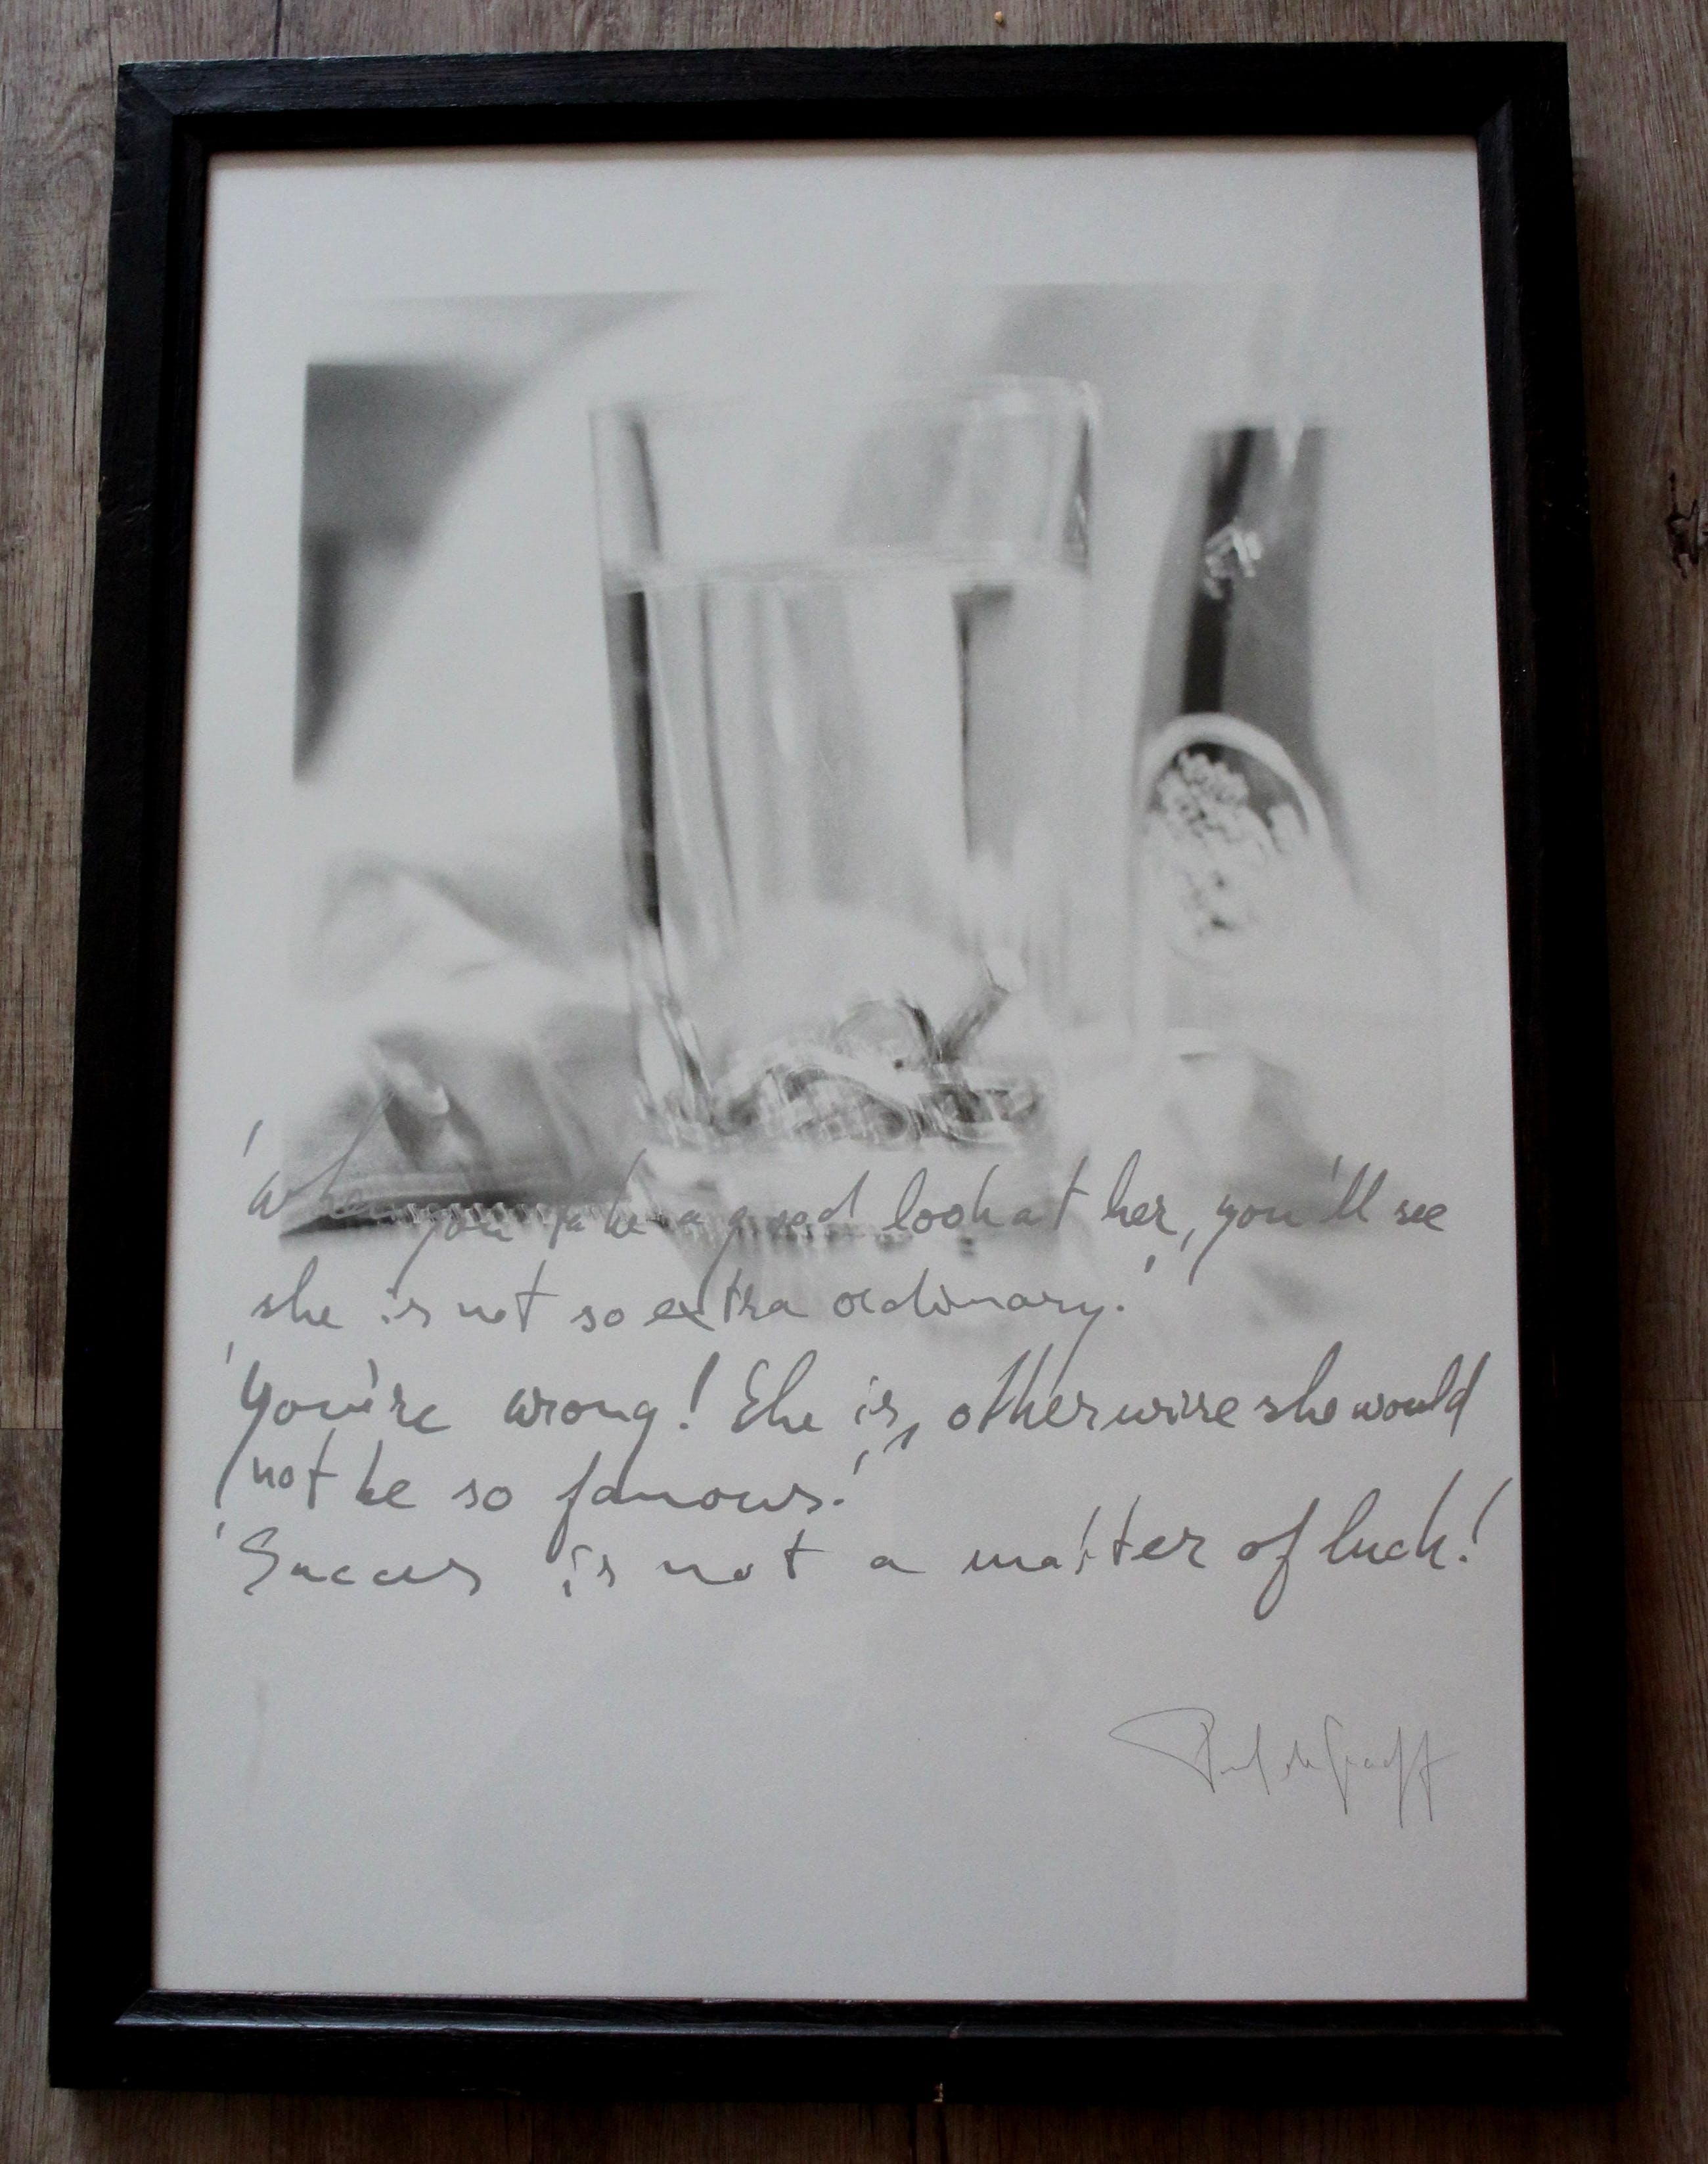 'When you take a good look at her, you'll see
she is not so extra ordinary.'
'You're wrong! She is, otherwise she would
not be so famous.'
'Succes is not a matter of luck!
Paul de Graaff